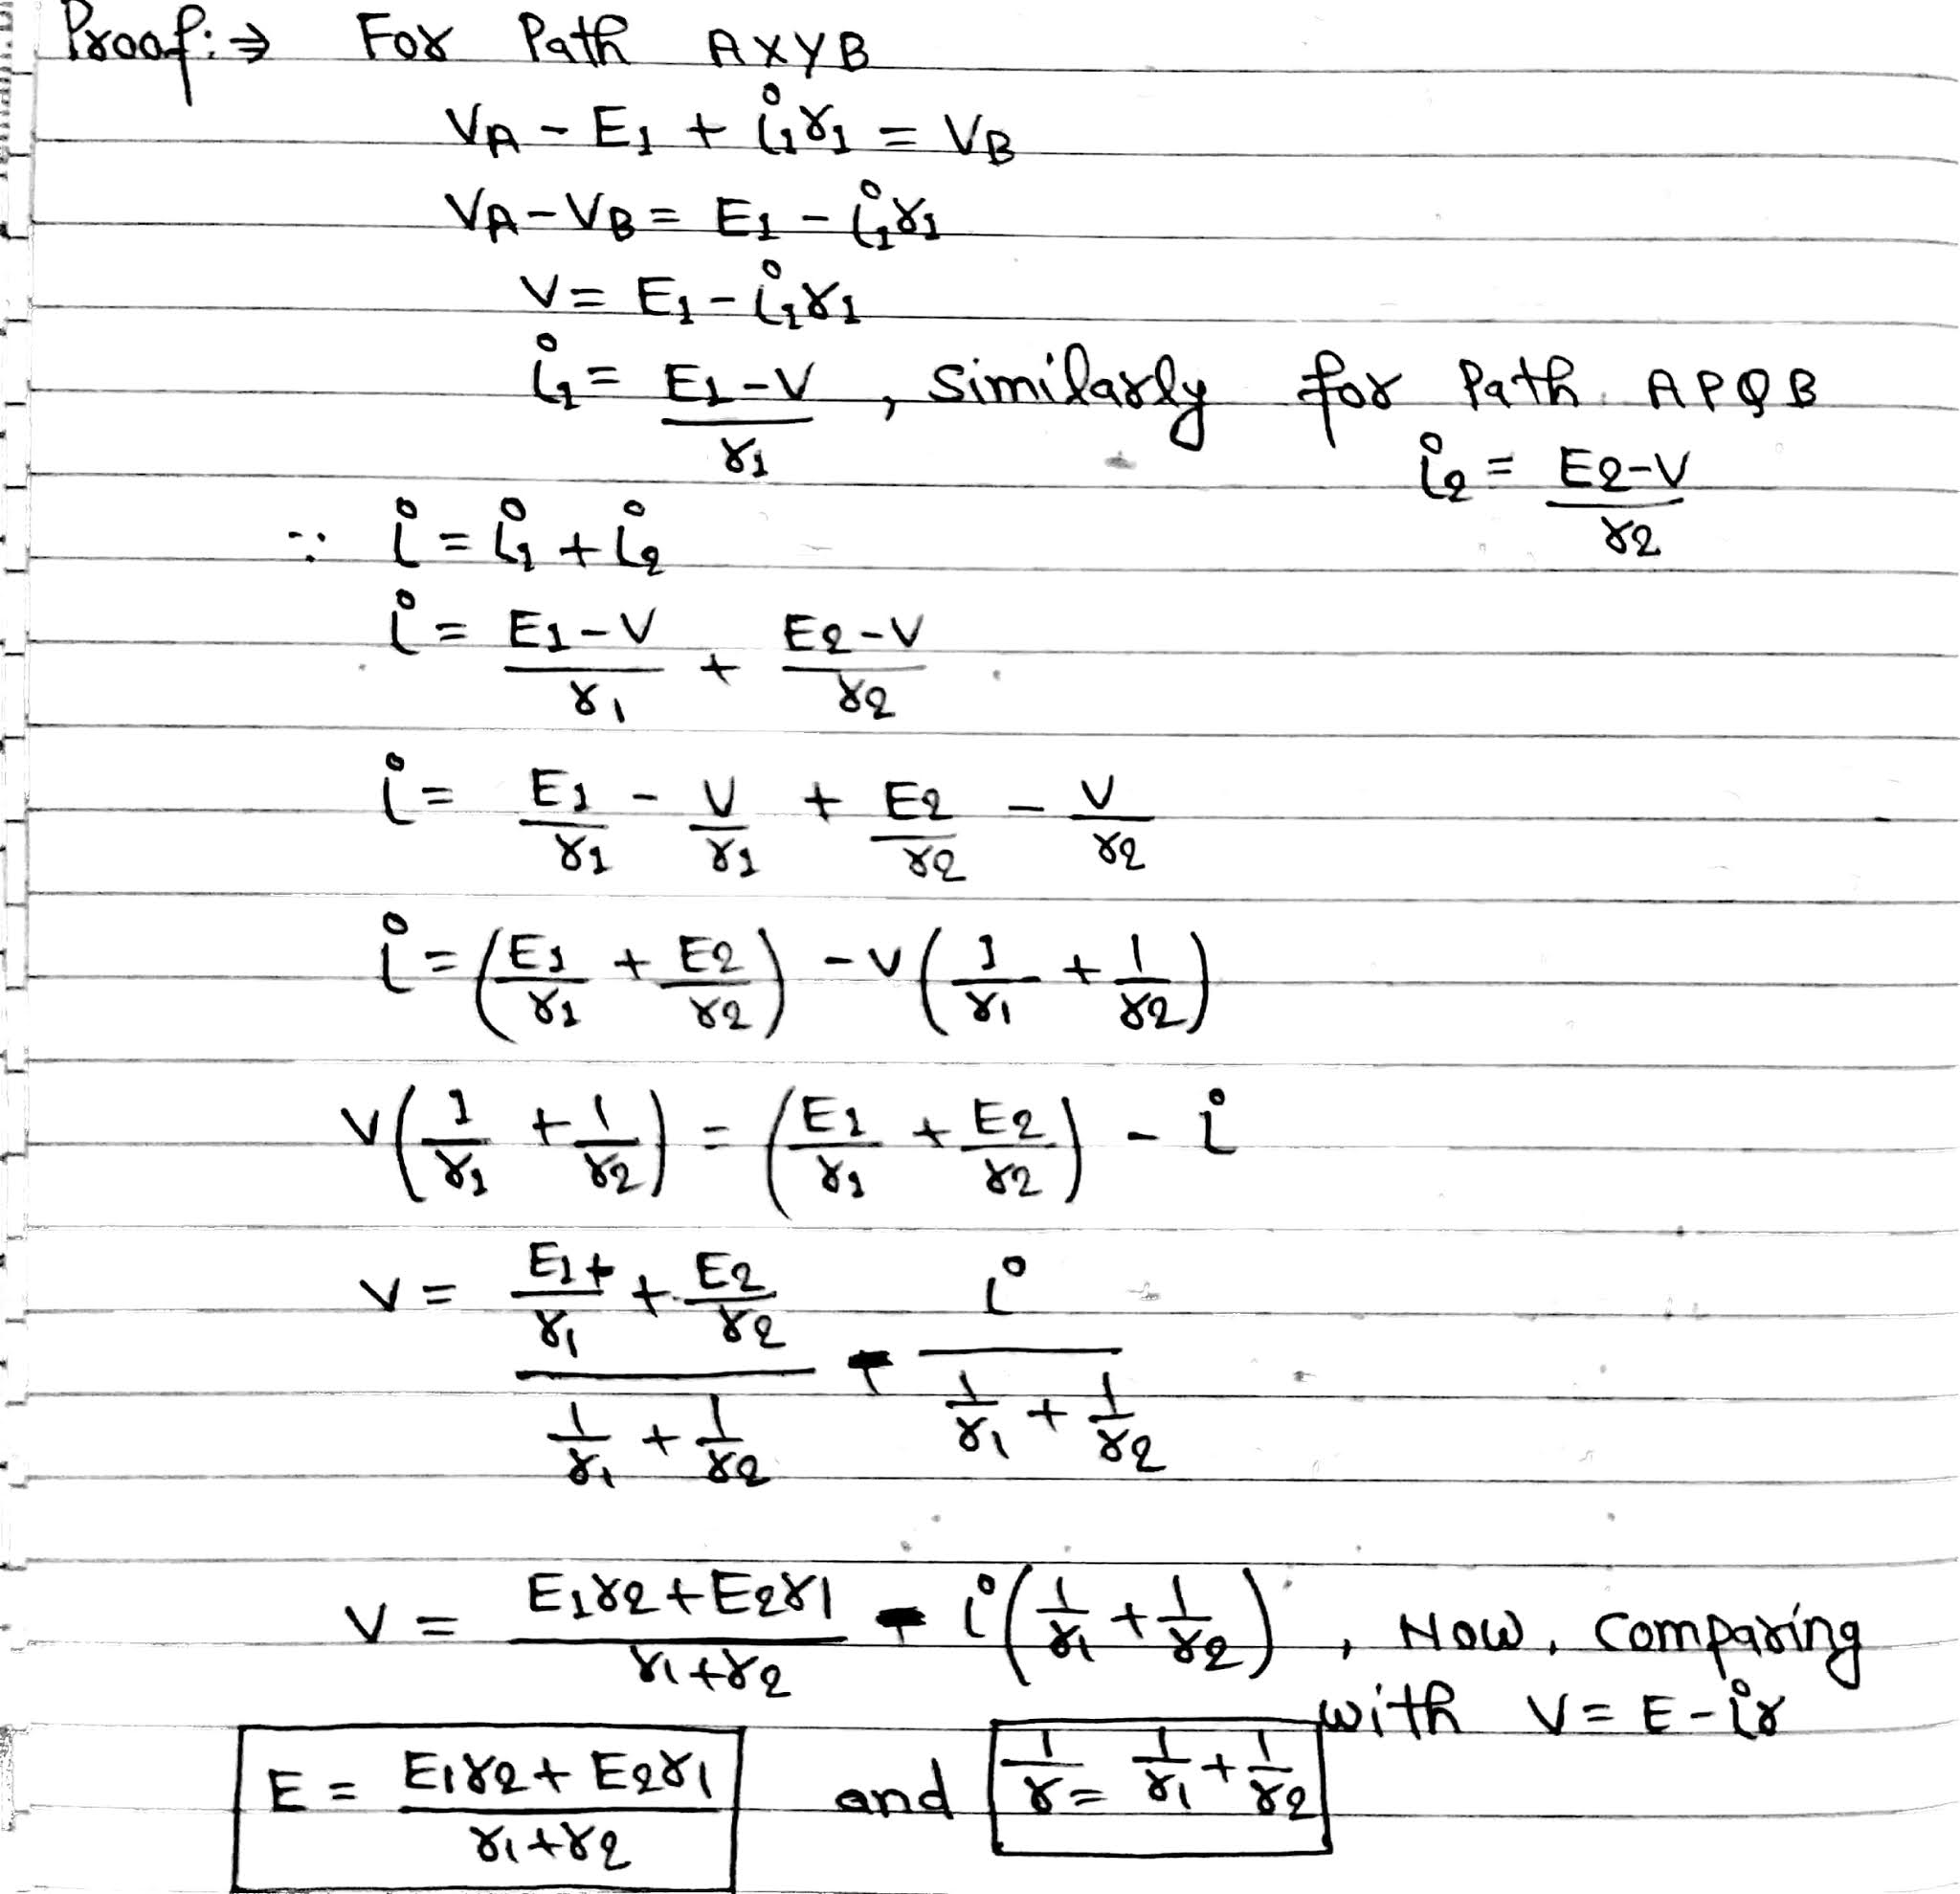 Proof:⇒ For Path AXYB
VA - E1 + i1r1 = VB
VA - VB = E1 - i1r1
V = E1 - i1r1
i1 = (E1 - V)/r1 , Similarly for Path APQB
i2 = (E2 - V)/r2
∵ i = i1 + i2
i = (E1 - V)/r1 + (E2 - V)/r2
i = E1/r1 - V/r1 + E2/r2 - V/r2
i = (E1/r1 + E2/r2) - V(1/r1 + 1/r2)
V(1/r1 + 1/r2) = (E1/r1 + E2/r2) - i
V = (E1+/r1 + E2/r2)/(1/r1 + 1/r2) - i/(1/r1 + 1/r2)
V = (E1r2 + E2r1)/(r1 + r2) - i(1/r1 + 1/r2) , Now, Comparing
with V = E - ir
E = (E1r2 + E2r1)/(r1 + r2) and 1/r = 1/r1 + 1/r2